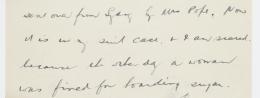 sent over from Gary by Mrs Pope. Now
it is in my suit case, & I am scared
because the other day a woman
was fined for hoarding sugar.